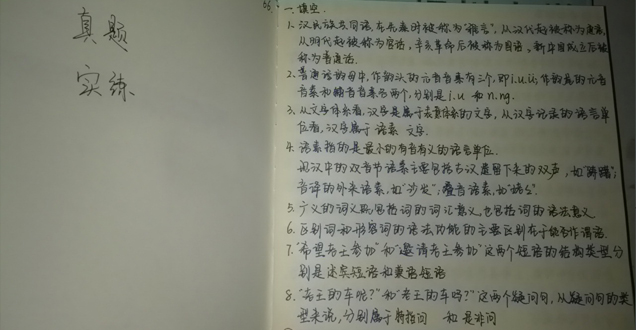 真题
实练
一.填空.
1. 汉民族共同语,在先秦时被称为"雅言",从汉代起被称为通语,
从明代起被称为官话,辛亥革命后被称为国语,新中国成立后被
称为普通话.
2. 普通话韵母中,作韵头的元音音素有三个,即i.u.ü;作韵尾的元音
音素和辅音音素各两个,分别是i.u 和n.ng.
3. 从文字体系看,汉字是属于表意体系的文字,从汉字记录的语言单
位看,汉字属于 语素 文字.
4. 语素指的是最小的有音有义的语言单位.
现汉中的双音节语素主要包括古汉语遗留下来的双声,如"踌躇";
音译的外来语素,如"沙发",叠音语素,如"
5. 广义的词义既包括词的词汇意义,也包括词的语法意义
6. 区别词和形容词的语法功能的主要区别在于能否作谓语.
7. "希望老王参加"和"邀请老王参加"这两个短语的结构类型分
别是述宾短语和兼语短语
8. "老王的车呢?"和"老王的车吗?"这两个疑问句,从疑问句的类
型来说,分别属于特指问 和 是非问